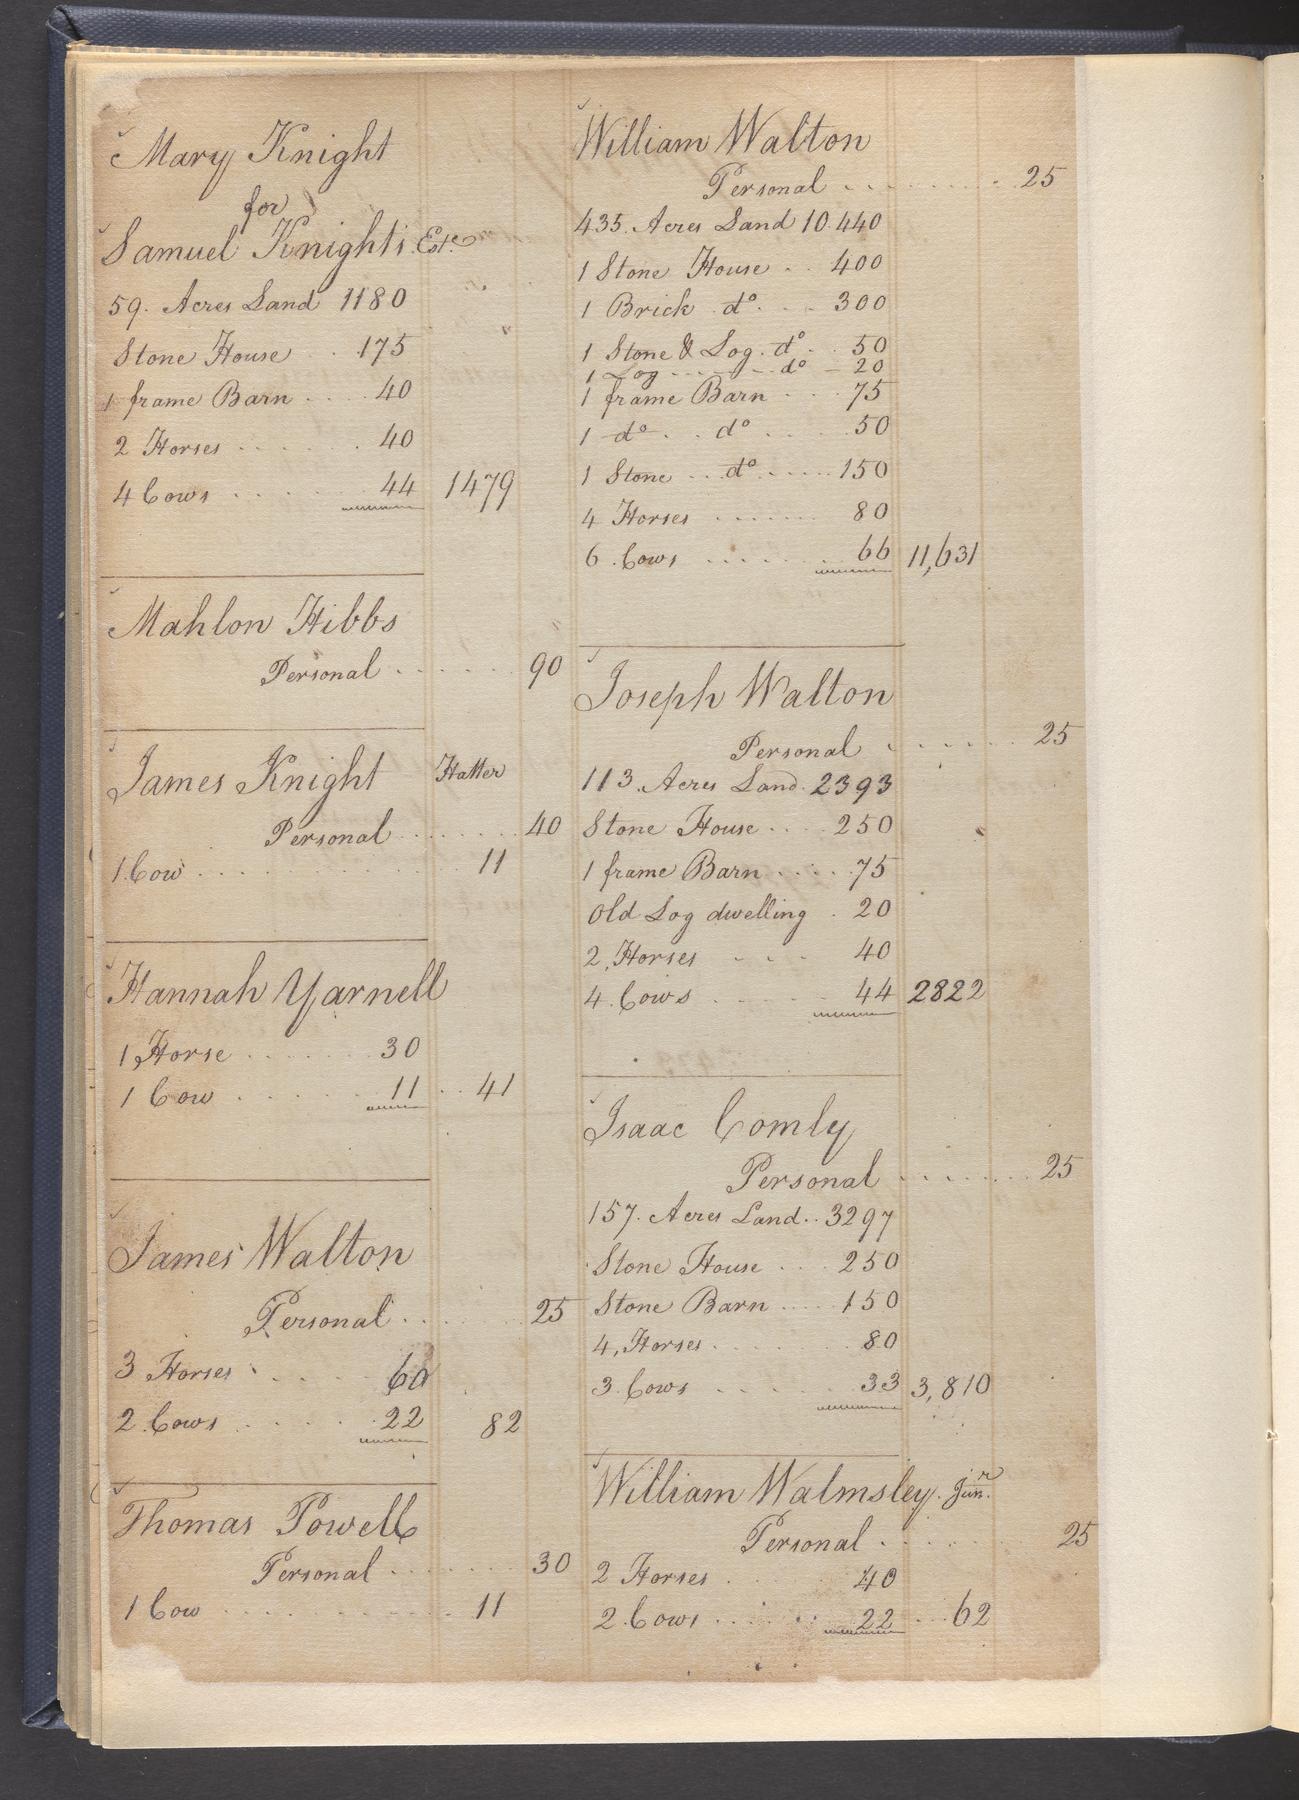 Mary Knight
for
Samuel Knight's Est.e
59. Acres Land 1180
Stone House .. 175
1 frame Barn .... 40
2 Horses ....... 40
4 Cows ....... 44 1479
Mahlon Hibbs
Personal ...... 90
James Knight Hatter
Personal ....... 40
1 Cow ........... 11
Hannah Yarnell
1 Horse ....... 30
1 Cow ....... 11 .. 41
James Walton
Personal ...... 25
3 Horses ..... 60
2 Cows ..... 22 82
Thomas Powell
Personal ....... 30
1 Cow ........... 11
William Walton
Personal ........ 25
435. Acres Land 10.440
1 Stone House .. 400
1 Brick do. .. 300
1 Stone & Log. do .. 50
1 Log ----- do - 20
1 frame Barn .... 75
1 do .. do ..... 50
1 Stone ... do ..... 150
4 Horses ...... 80
6 Cows ...... 66 11,631
Joseph Walton
Personal ....... 25
113. Acres Land. 2393
Stone House .... 250
1 frame Barn ..... 75
Old Log dwelling . 20
2, Horses .... 40
4. Cows ...... 44 2822
Isaac Comly
Personal ....... 25
157. Acres Land .. 3297
Stone House ... 250
Stone Barn .... 150
4, Horses ....... 80
3. Cows ...... 33 3,810
William Walmsley. Junr.
Personal ....... 25
2 Horses . 40
2. Cows ...... 22 .. 62